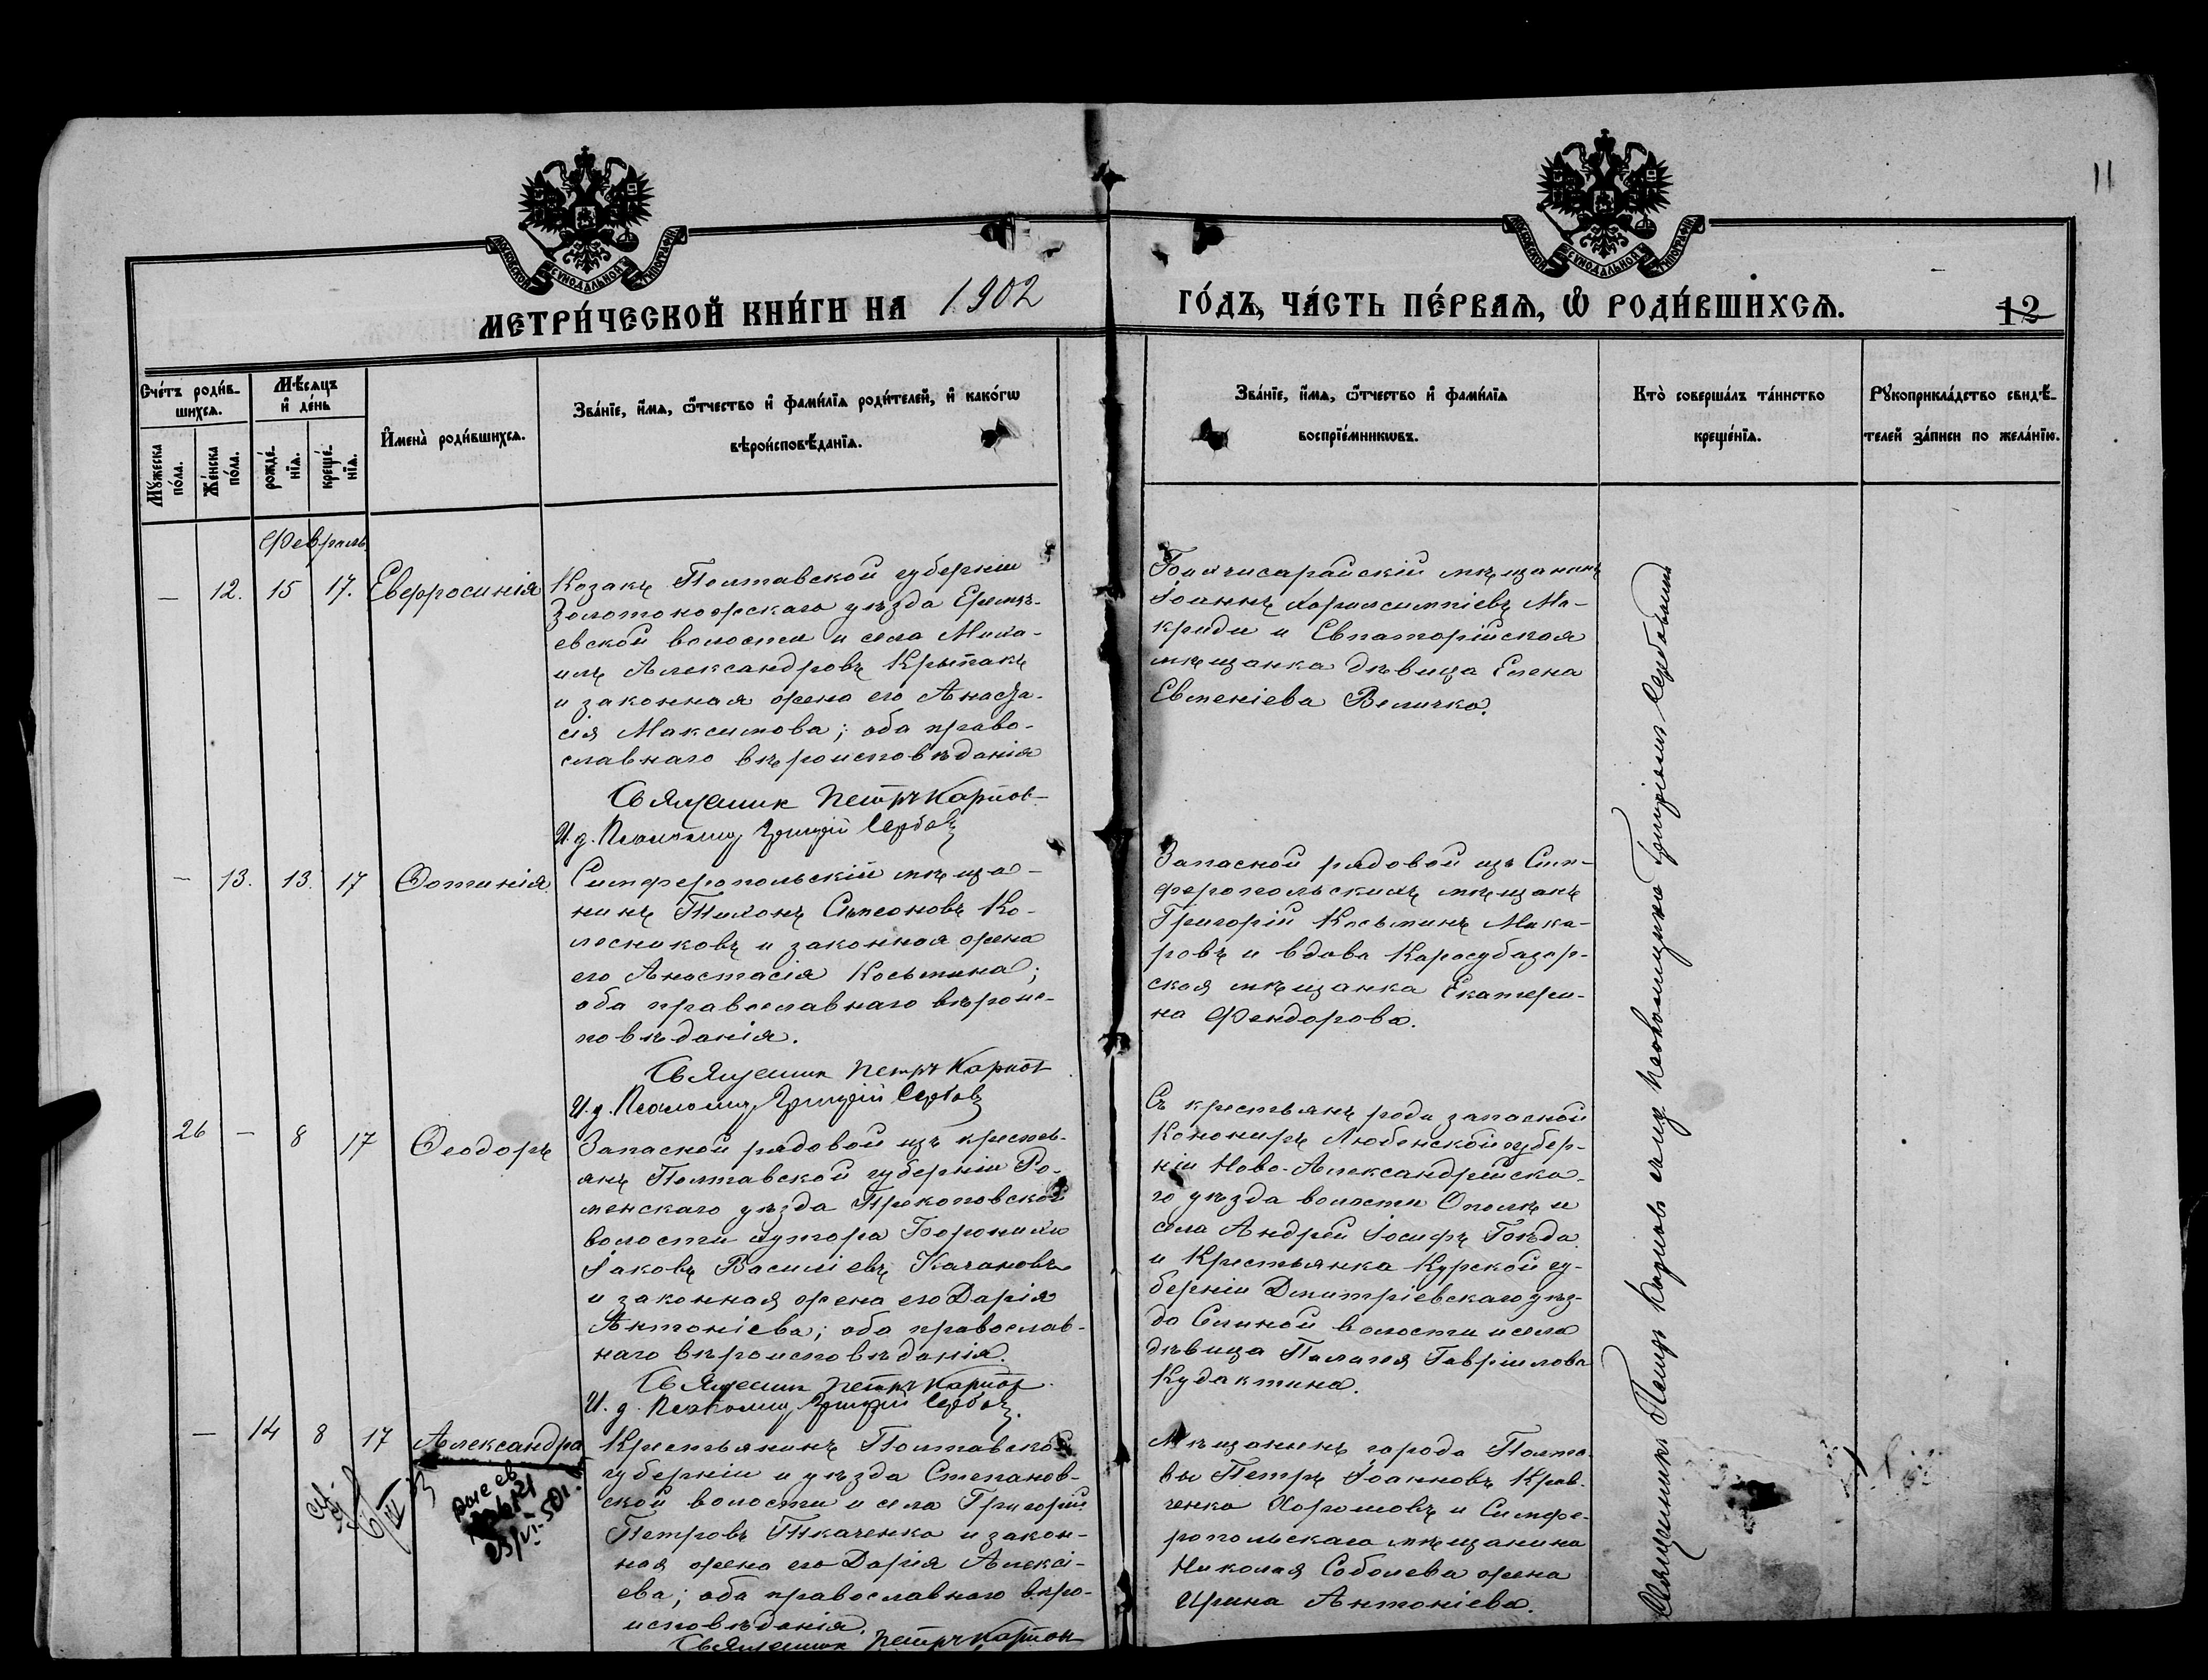 11
МОСКОВСКОЙ СѴНОДАЛЬНОЙ ТИПОГРАФІИ
МОСКОВСКОЙ СѴНОДАЛЬНОЙ ТИПОГРАФІИ
МЕТРИ́ЧЕСКОЙ КНИ́ГИ НА 1902
ГО́ДЪ, ЧА́СТЬ ПЕ́РВАѦ, Ѽ РОДИ́ВШИХСѦ.
12
Сче́тъ роди́в-
шихсѧ.
Мꙋ́жеска
по́ла.
Же́нска
по́ла.
Мѣ́сѧцъ
и҆ де́нь
рожде́-
нїѧ.
креще́-
нїѧ.
И҆мена̀ роди́вшихсѧ.
Зва́нїе, и҆́мѧ, ѻ҆́тчество и҆ фами́лїѧ роди́телей, и҆ како́гѡ
вѣроисповѣ́данїѧ.
Зва́нїе, и҆́мѧ, ѻ҆́тчество и҆ фами́лїѧ
воспрїе́мникѡвъ.
Кто̀ соверша́лъ та́инство
креще́нїѧ.
Рꙋкоприкла́дство свидѣ́-
телей за́писи по жела́нїю.
Февраль
— 12. 15 17. Евфросинія
Козакъ Полтавской губерніи
Золотоношскаго уѣзда Еремѣ-
евской волости и села Миха-
илъ Александровъ Крыпакъ
и законная жена его Анаста-
сія Максимова; оба право-
славнаго вѣроисповѣданія
Священик Петръ Карпов
И. д. Псаломщ. Григорій Сербовъ
Бахчисарайскій мѣщанинъ
Іоаннъ Харалампіевъ Ма-
криди и Евпаторійская
мѣщанка дѣвица Елена
Евгеніева Величко.
— 13. 13. 17 Фотинія.
Симферопольскій мѣща-
нинъ Тихонъ Симеоновъ Ко-
лесниковъ и законная жена
его Анастасія Косьмина;
оба православнаго вѣроис-
повѣданія.
Священик Петръ Карпов
И. д. Псаломщ. Григорій Сербовъ
Запасной рядовой изъ Сим-
феропольскихъ мѣщанъ
Григорій Косьминъ Мака-
ровъ и вдова Карасубазар-
ская мѣщанка Екатери-
на Фендорова.
26 — 8 17 Ѳеодоръ
Запасной рядовой изъ кресть-
янъ Полтавской губерніи Ро-
менскаго уѣзда Прокоповской
волости хутора
Іаковъ Василіевъ Качановъ
и законная жена его Дарія
Антоніева; оба православ-
наго вѣроисповѣданія.
Священик Петръ Карпов
И. д. Псаломщ. Григорій Сербовъ.
Съ крестьянъ рода запасной
Канониръ Любенской губер-
ніи Ново-Александрійска-
го уѣзда волости Ополе и
села Андрей Іосифъ
и Крестьянка Курской гу-
берніи Дмитріевскаго уѣз-
да волости и села
дѣвица Палагея Гавріилова
Кудактина.
— 14 8 17 Александра
Крестьянинъ Полтавской
губерніи и уѣзда Степанов-
ской волости и села Григорій
Петровъ Ткаченко и закон-
ная жена его Дарія Алексі-
ева; оба православнаго вѣро-
исповѣданія.
Священик Петръ Карпов
Мѣщанинъ города Полта-
вы Петръ Іоанновъ Крав-
ченко и Симфе-
ропольскаго мѣщанина
Николая Соболева жена
Ирина Антоніева.
Священникъ Петръ Карповъ съ псаломщикомъ Григоріемъ Сербовымъ